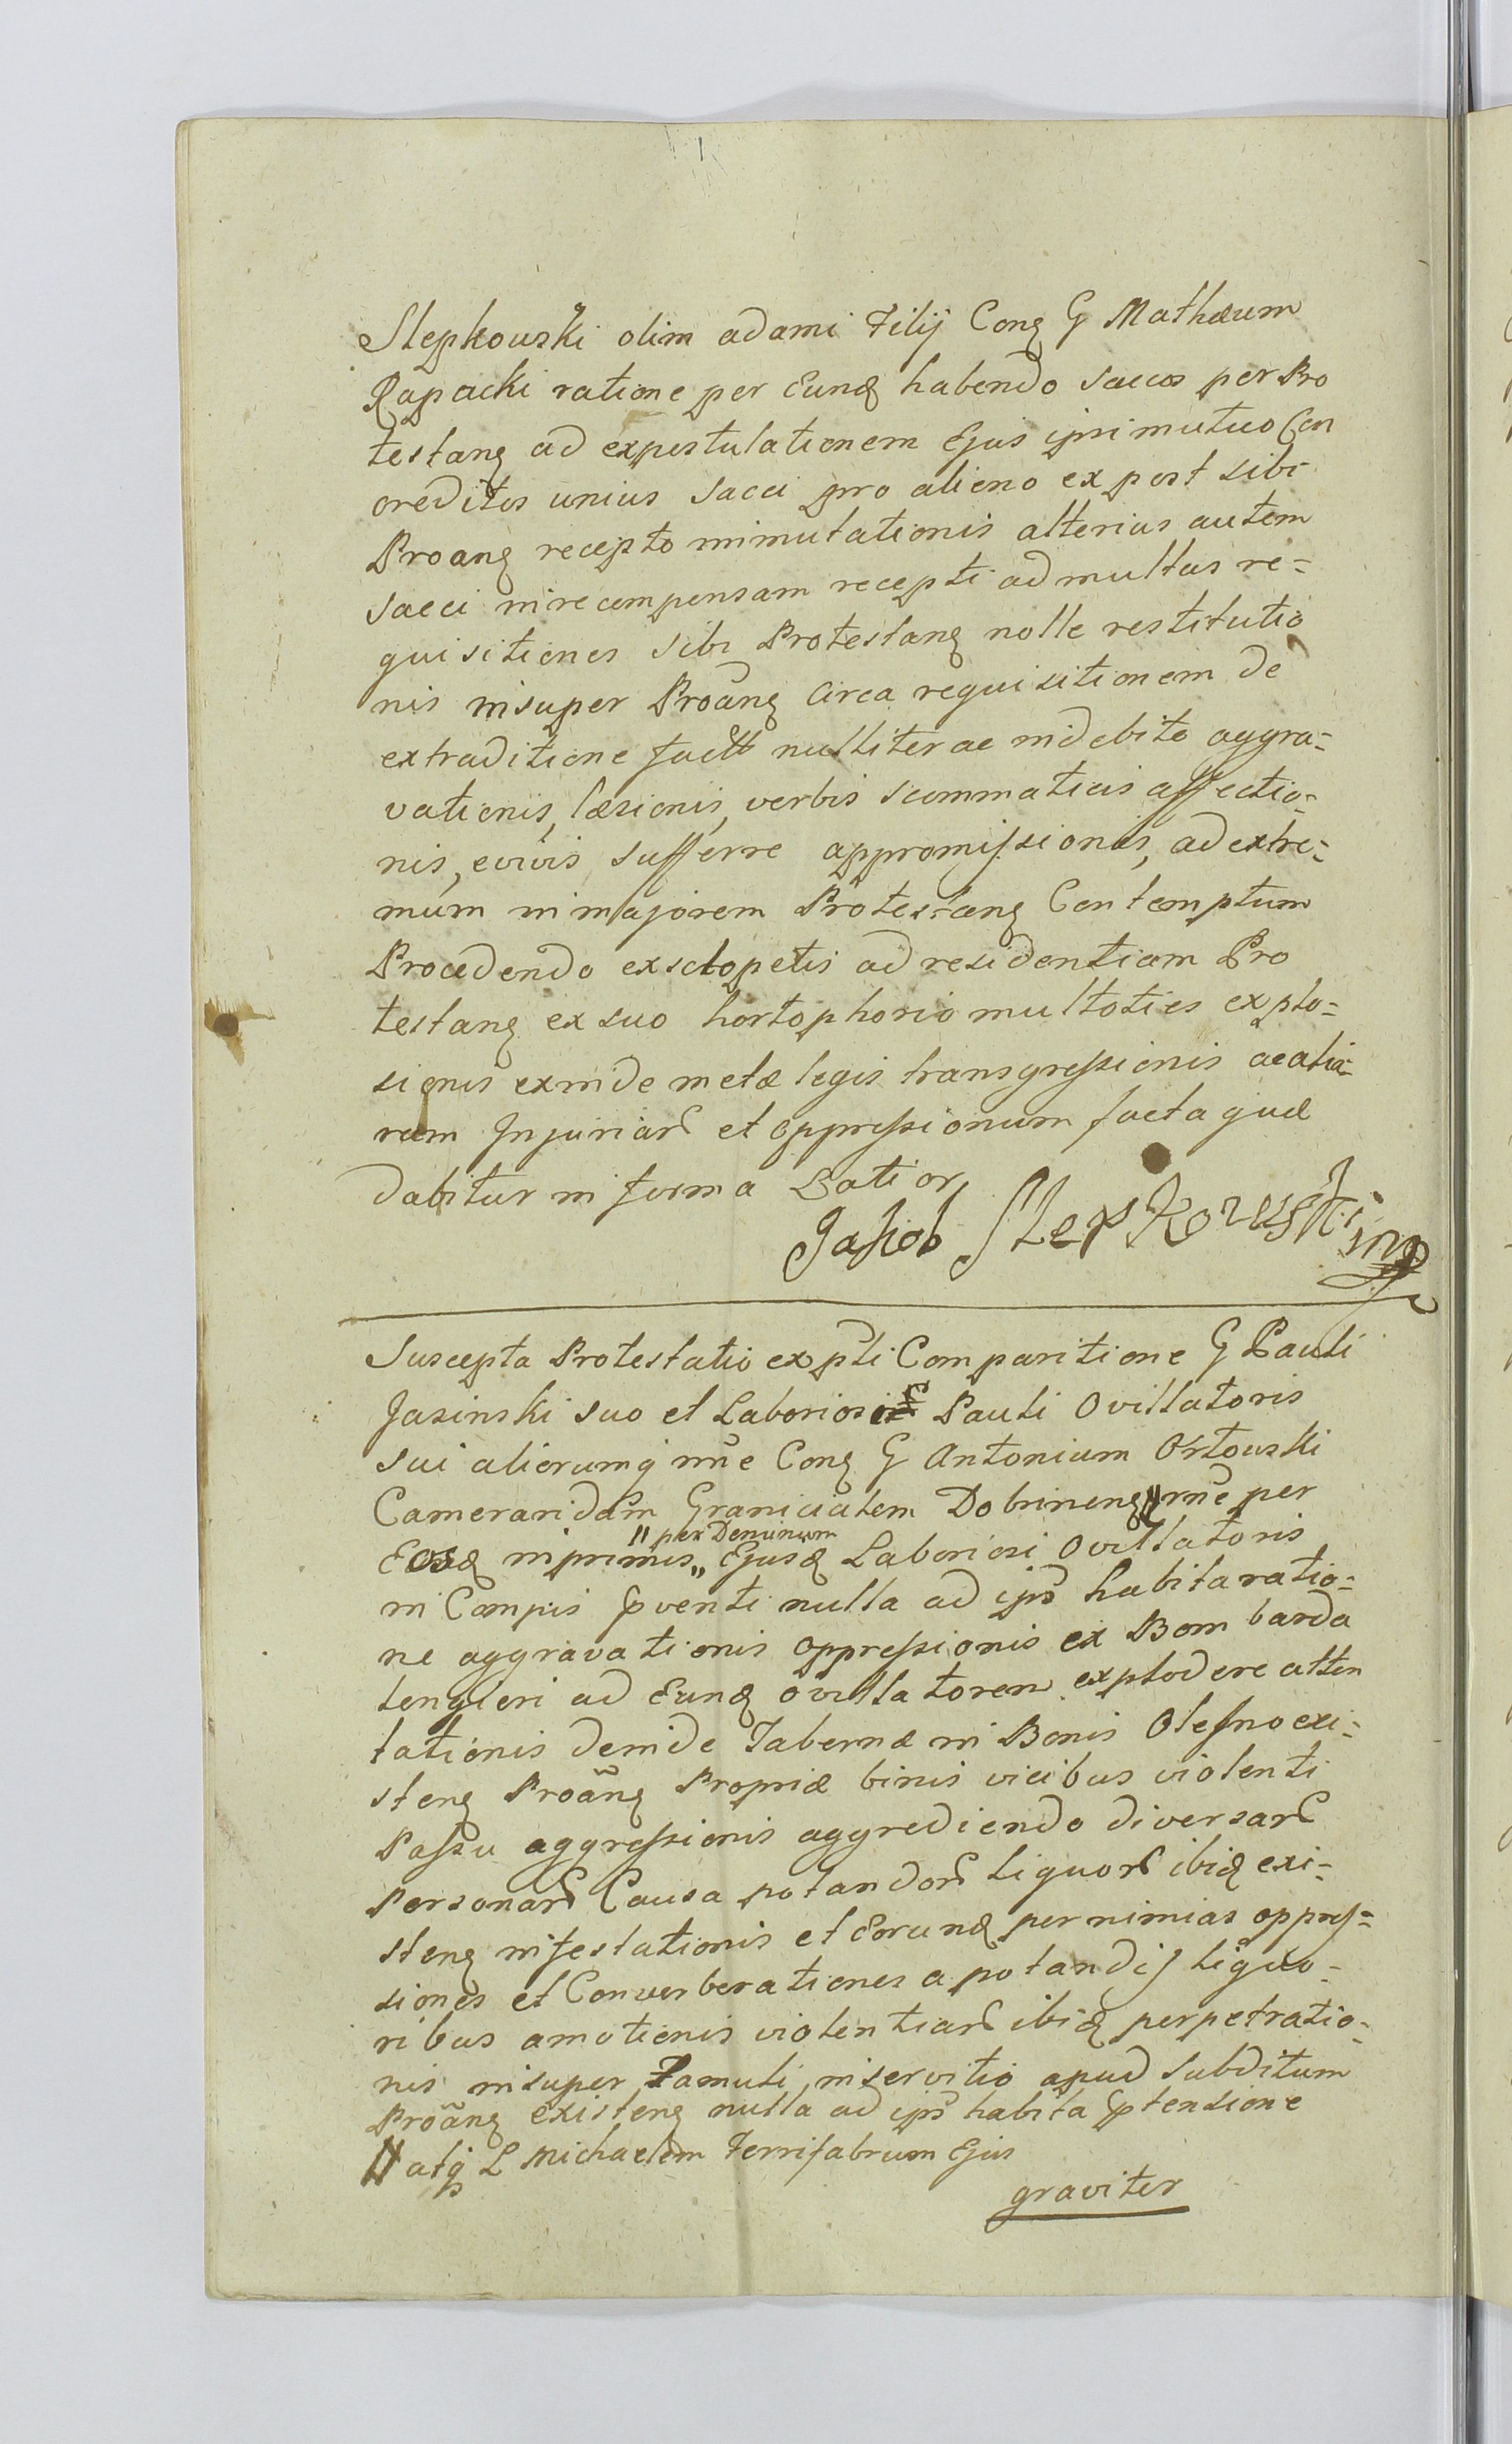 Slepkowski olim adami Filij Cong G Mathæum
Rapacki ratione per Eundꝫ habendo saccos per Pro
testang ad expostulationem Ejus ipsi mutuo Con
creditos unius sacci pro alieno ex post sibi
Proang recepto immutationis alterius autem
sacci in recompensam recepti ad multas re=
quisitiones sibi Protestang nolle restitutio
nis insuper Proãng circa requisitionem de
extraditione fact nulliter ac indebite aggra=
vationis, læsionis, verbis scommaticis affectio=
nis, e vivis sufferre appromissionis, ad extre=
mum in majorem Protestang Contemptum
Procedendo ex sclopetis ad residentiam Pro
testang ex suo hortophorio multoties explo=
sionis exinde metæ legis transgressionis ac alia=
rum Injuriarũ et oppressionum facta quæ
dabitur in forma Latior,
Jakob SLepKowsKi mp
Suscepta Protestatio ex pti Comparitione G Pauli
Jasinski suo et Laboriosi Pauli Ovillatoris
sui aliorumq nñe Cong G Antonium Orłowski
Camerarium Granicialem Dobrineng // rñe per
Eosdꝫ inprimis „ Ejusdꝫ Laboriosi Ovillatoris
// per Dominum
in Campis pventi nulla ad ips habita ratio=
ne aggravationis oppressionis ex Bombarda
tengieri ad Eundꝫ ovillatorem explodere atten
tationis deinde Tabernæ in Bonis Olesno exi=
steng Proãng Propriæ binis vicibus violenti
Passu aggressionis aggrediendo diversarũ
Personarũ Causa potandorũ liquorũ ibidꝫ exi=
steng infestationis et Eorundꝫ per nimias oppres=
siones et Converberationes a potandis liquo=
ribus amotionis violentiarũ ibidꝫ perpetratio=
nis insuper Famuli in servitio apud subditum
Proãng existeng nulla ad ips habita ptensione
// atq L Michaelem Ferrifabrum Ejus
graviter